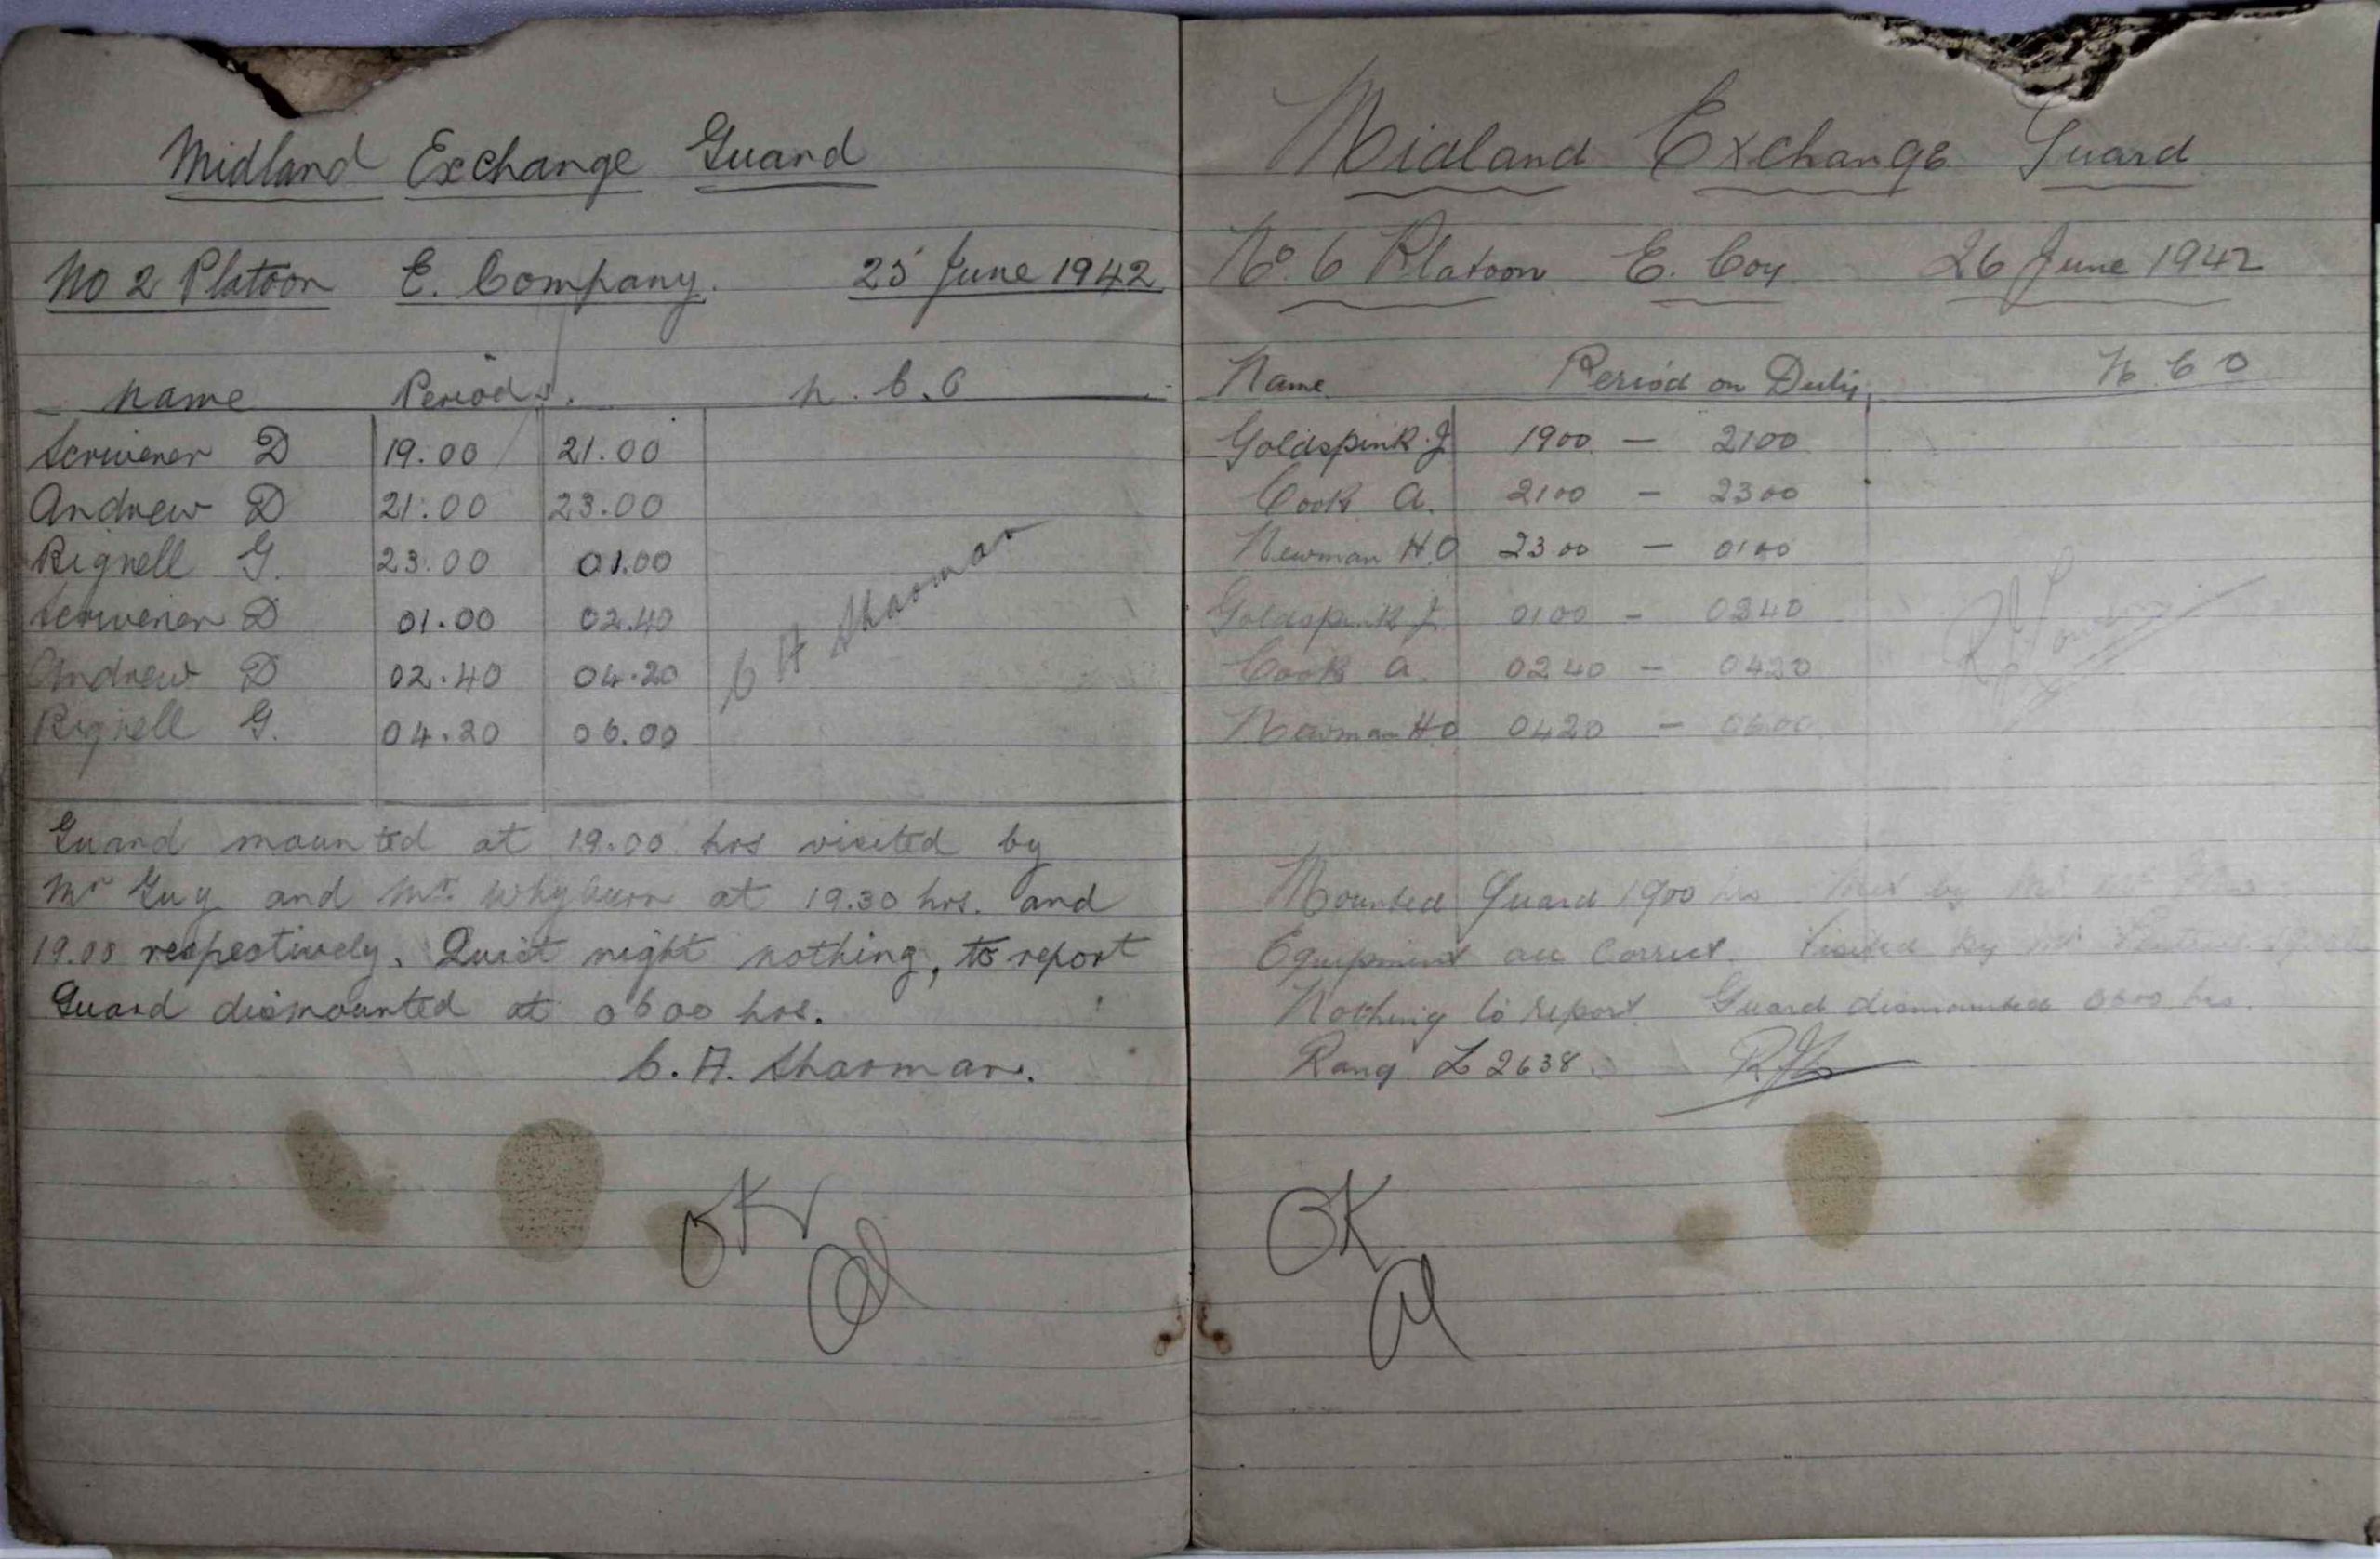 Midland Exchange Guard
No 2 Platoon E. Company. 25 June 1942
Name Period. N.C.O
Scrivener D 19.00 21.00
Andrew D 21.00 23.00
Rignell G. 23.00 01.00
Scrivener D 01.00 02.40
Andrew D 02.40 04.20
Rignell G. 04.20 06.00
C H Sharman
Guard mounted at 19.00 hrs visited by
Mr Guy and Mr. at 19.30 hrs. and
19.08 respectively. Quiet night nothing, to report
Guard dismounted at 0600 hrs.
C. H. Sharman.
OK
Midland Exchange Guard
No. 6 Platoon E. Coy 26 June 1942
Name Period on Duty N C O
Goldspink J 1900 - 2100
Cook A. 2100 - 2300
Newman H.O 2300 - 0100
Goldspink J. 0100 - 0240
Cook A. 0240 - 0420
Newman H.O 0420 - 0600
Mounted Guard 1900 hrs by
Equipment all Correct. Visited by Mr
Nothing to report. Guard dismounted 0600 hrs.
Rang L 2638.
OK